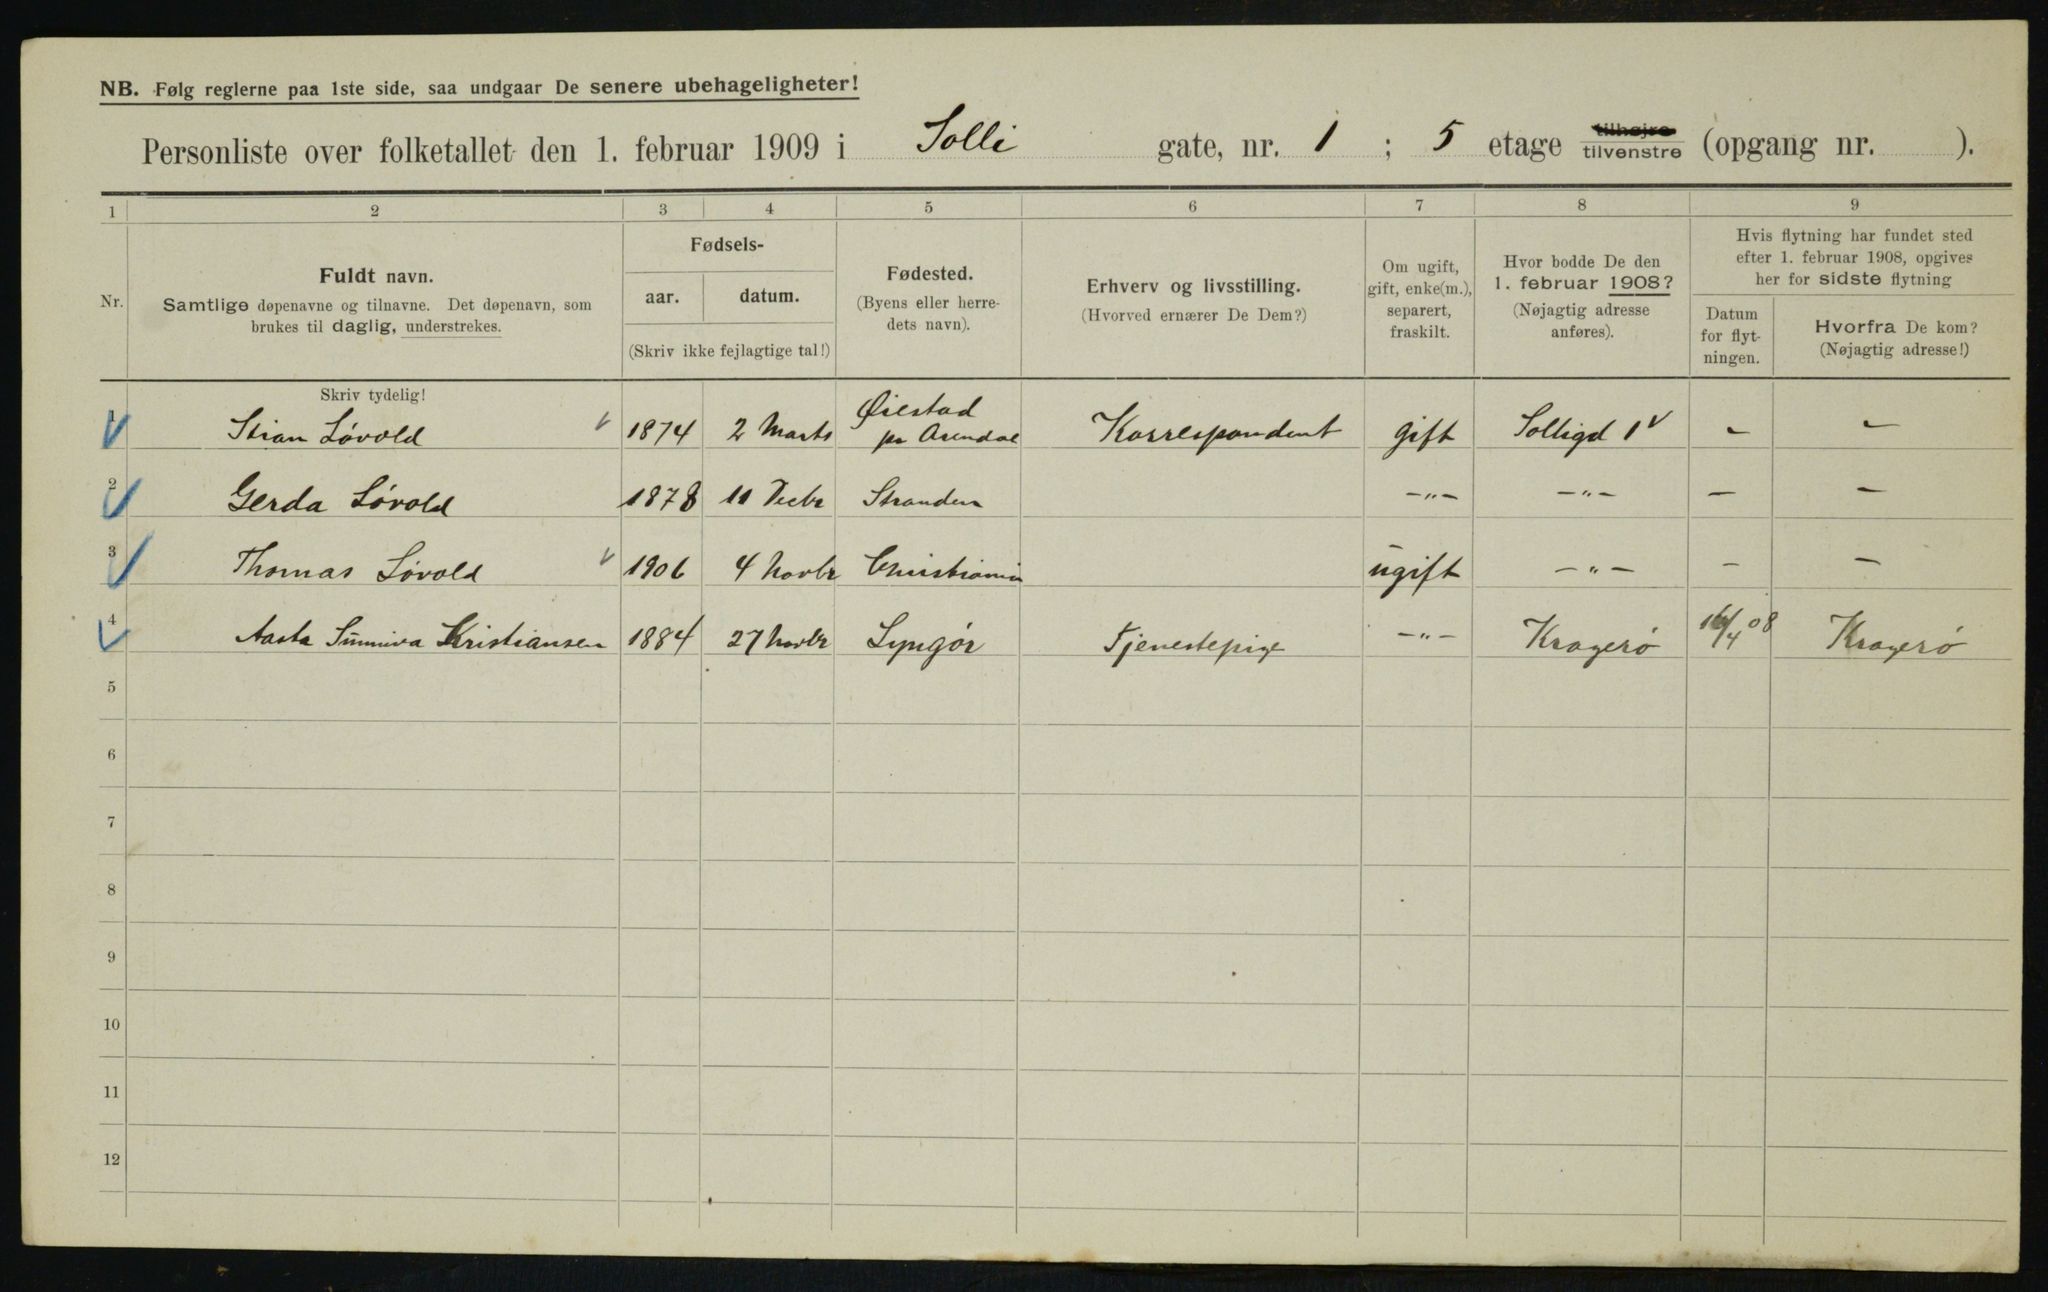 NB. Følg reglerne paa 1ste side, saa undgaar De senere ubehageligheter!
Personliste over folketallet den 1. februar 1909 i Solli gate, nr. 1 ; 5 etage tilhøjre tilvenstre (opgang nr. ).
1 2 3 4 5 6 7 8 9
Nr.
Fuldt navn.
Samtlige døpenavne og tilnavne. Det døpenavn, som
brukes til daglig, understrekes.
Fødsels-
aar. datum.
(Skriv ikke fejlagtige tal!)
Fødested.
(Byens eller herre-
dets navn).
Erhverv og livsstilling.
(Hvorved ernærer De Dem?)
Om ugift,
gift, enke(m.),
separert,
fraskilt.
Hvor bodde De den
1. februar 1908?
(Nøjagtig adresse
anføres).
Hvis flytning har fundet sted
efter 1. februar 1908, opgives
her for sidste flytning
Datum
for flyt-
ningen.
Hvorfra De kom?
(Nøjagtig adresse!)
Skriv tydelig!
1 Stian Løvold 1874 2 Marts Øiestad pr Arendal Korrespondent gift Solligd 1 - -
2 Gerda Løvold 1878 11 Decbr Stranden -"- -"- - -
3 Thomas Løvold 1906 4 Novbr Christiania ugift -"- - -
4 Aasta Sunniva Kristiansen 1884 27 Novbr Lyngør Tjenestepige -"- Kragerø 16/4 08 Kragerø
5
6
7
8
9
10
11
12